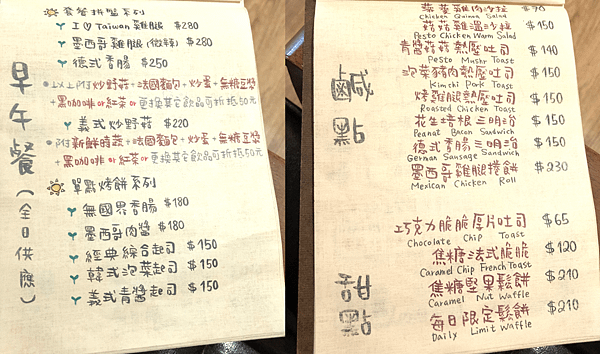 套餐拼盤系列
I ♡ Taiwan 雞腿 $280
墨西哥雞腿(微辣) $280
德式香腸 $250
•以上附炒野菇+法國麵包+炒蛋+無糖豆漿
+黑咖啡or紅茶or更換其它飲品可折抵50元
義式炒野菇 $220
•附新鮮時蔬+法國麵包+炒蛋+無糖豆漿
+黑咖啡or紅茶or更換其它飲品可折抵50元
早午餐(全日供應)
單點烤餅系列
無國界香腸 $180
墨西哥肉醬 $180
經典綜合起司 $150
韓式泡菜起司 $150
義式青醬起司 $150
Chicken Quinoa Salad
菇菇雞溫沙拉 $150
Pesto Chicken Warm Salad
青醬菇菇熱壓吐司 $140
Pesto Mushr Toast
泡菜豬肉熱壓吐司 $150
Kimchi Pork Toast
烤雞腿熱壓吐司 $150
Roasted Chicken Toast
花生培根三明治 $150
Peanut Bacon Sandwich
德式香腸三明治 $150
German Sausage Sandwich
墨西哥雞腿捲餅 $230
Mexican Chicken Roll
鹹點
巧克力脆脆厚片吐司 $65
Chocolate Chip Toast
焦糖法式脆脆 $120
Caramel Chip French Toast
焦糖堅果鬆餅 $210
Caramel Nut Waffle
每日限定鬆餅 $210
Daily Limit Waffle
甜點